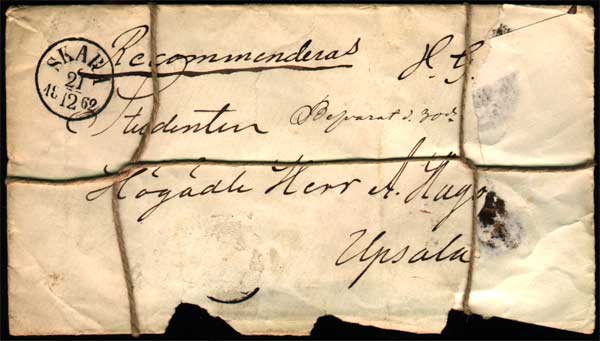 SKARA
21
18 12 69
Recommenderas
H. G.
Studenten Besvarat d. 30 d.
Högädle Herr A. Hago
Upsala